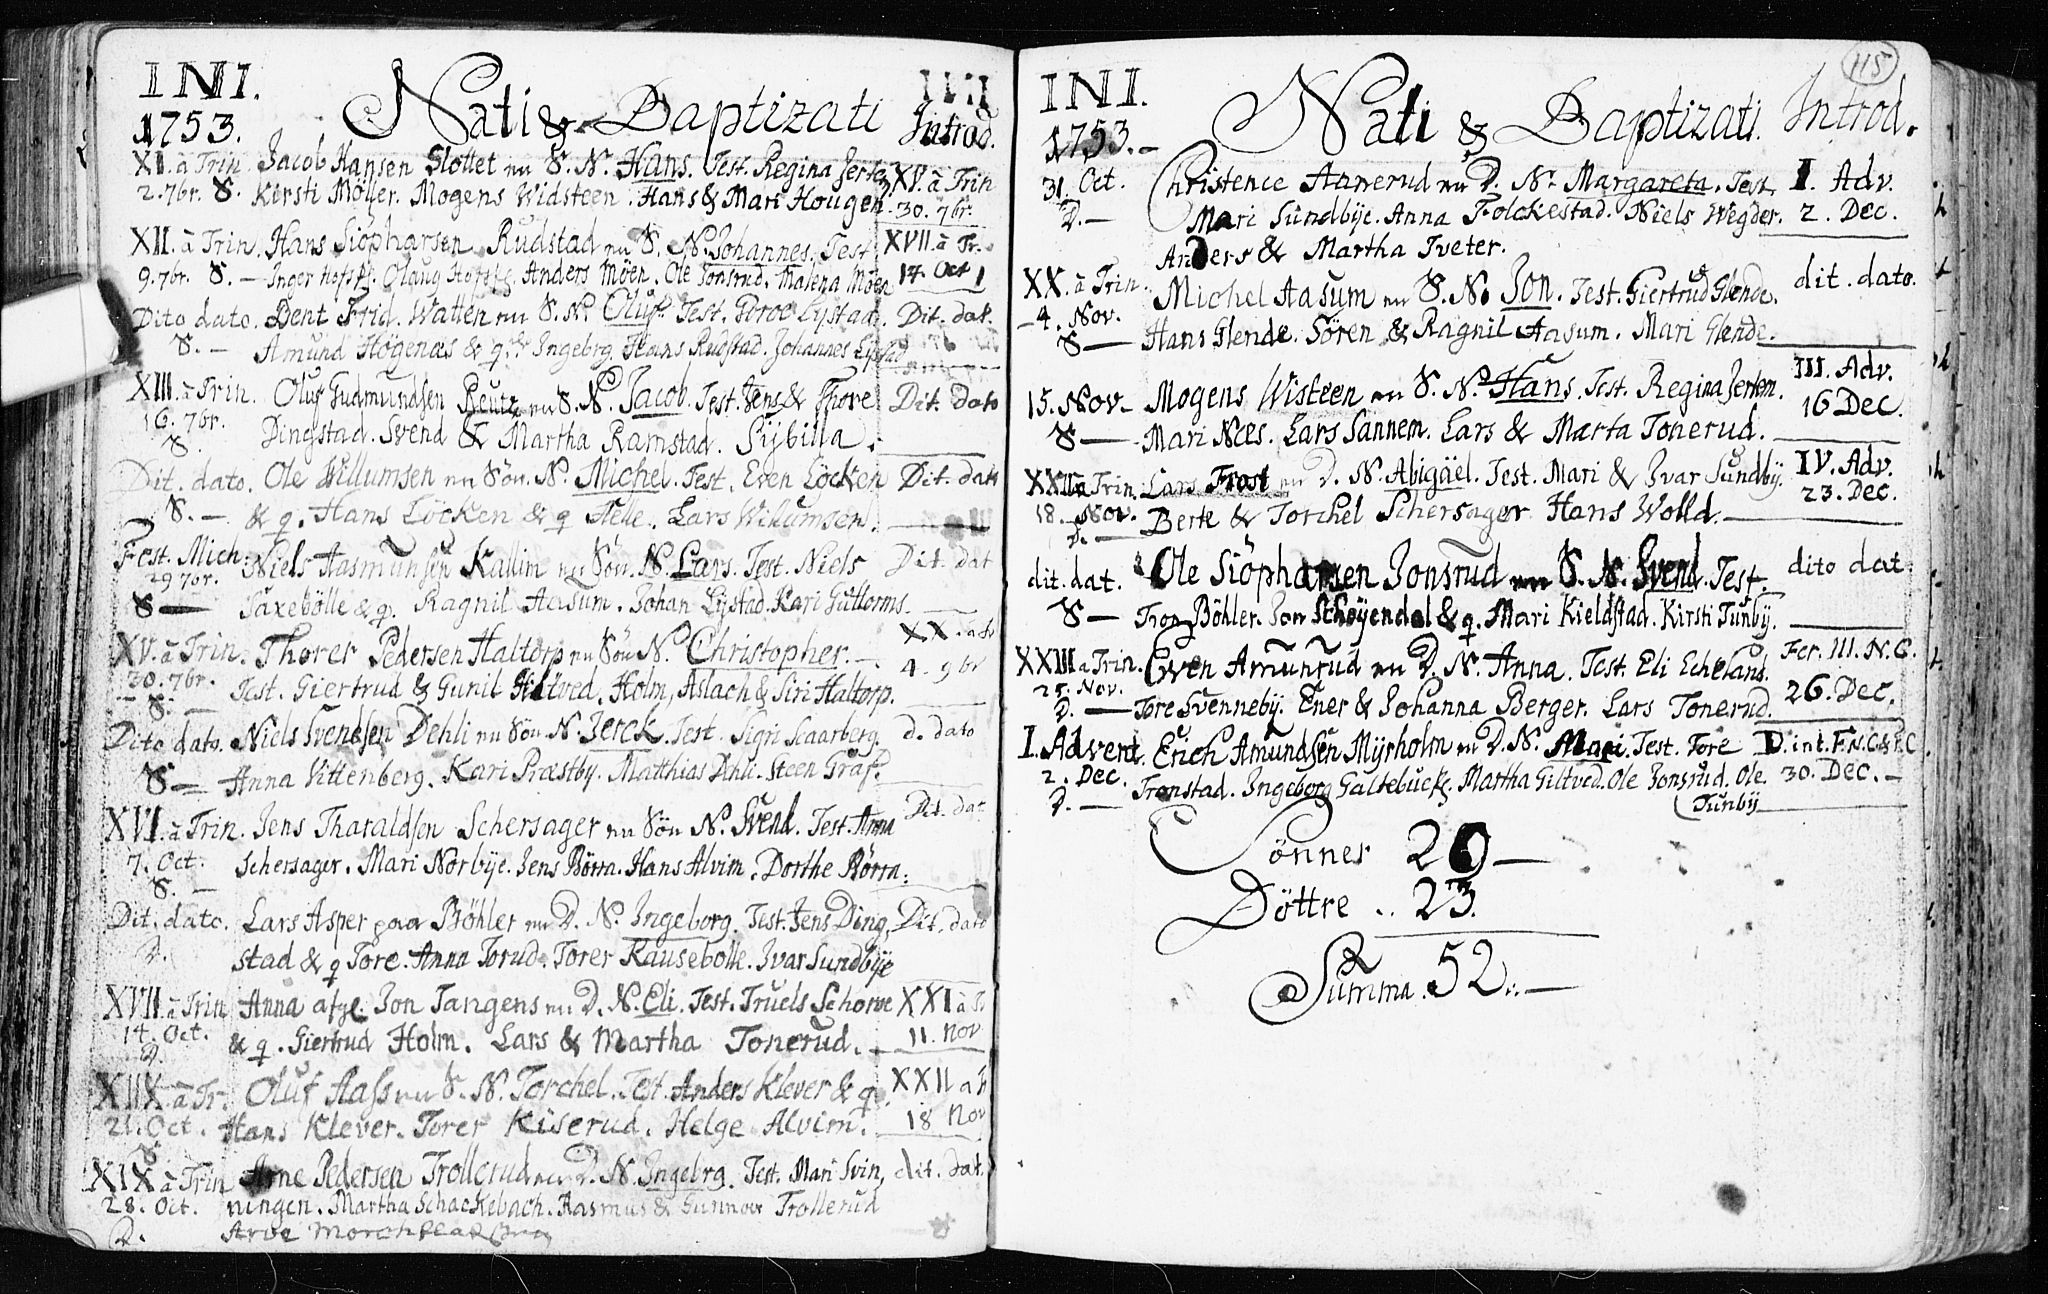 INI.
1753.
Nati & Baptizati
Introd.
XI. à Trin. Jacob Hansen Slottet nu S. N. Hans. Test. Regina Jertem XV. à Trin
2. 7br. S. Kirsti Möller. Mogens Widsteen. Hans & Mari Hougen. 30. 7br.
XII. à Trin. Hans Siöpharsen Rudstad nu S. N. Johannes. Test XVII. à Tr.
9. 7br. S. — Inger Olaug Anders Moen. Ole Jonsrud. Malena Moen 14. Oct
Dito dato. Bent Frid. Watten nu S. N. Oluf. Test. Poroe Lystad. Dit. dat.
S. — Amund Högenæs & q. Ingebrg. Hans Rudstad. Johannes Lystad
XIII. à Trin. Oluf Gudmundsen Reutz nu S. N. Jacob. Test. Jens & Thore Dit. dato
16. 7br. S. Dingstad. Svend & Martha Ramstad. Sybilla.
Dit. dato. Ole Willumsen nu Sön. N. Michel. Test. Even Löcken Dit. dato
S. — & q. Hans Löcken & q Helle. Lars Willumsen.
Fest. Mich: Niels Aasmunsen Kallim nu Sön. N. Lars. Test. Niels Dit. dat
29 7br.
S — Taxebölle & q. Ragnil Aasum. Johan Lystad. Kari Guttorms.
XV. à Trin. Thorer Pedersen Haltorp nu Sön N. Christopher. — XX. à tr
30. 7br. 4. 9br
S. — Test. Giertrud & Gunil Hiltved. Holm, Aslach & Siri Haltorp.
Dito dato. Niels Svendsen Dehli nu Sön N. Jerck. Test. Sigri Scaarberg. d. dato
S — Anna Vittenberg. Kari Præstby. Matthias Dhli. Steen Graf.
XVI. à Trin. Jens Tharaldsen Schersager nu Sön N. Svend. Test. Anna Dit. dat
7. Oct. Schersager. Mari Norbye. Jens Börra. Hans Alvim. Dorthe Börra.
S. —
Dit. dato. Lars Asper paa Böhler nu D. N. Ingeborg. Test. Jens Ding, Dit. dato
D. stad & q Tore. Anna Torud. Torer Rausebolle. Ivar Sundbye
XVII. à Trin Anna afgl. Jon Tangens nu D. N. Eli. Test. Truels Schorve XXI à T.
14. Oct. & q. Giertrud Holm. Lars & Martha Tonerud. 11. Nov
D.
XIIX. à Tr. Oluf Aass nu S. N. Torchel. Test. Anders Klever & q. XXII a Tr
21. Oct. Hans Klever. Torer Kiserud. Helge Alvim. 18 Nov
S
XIX à Trin Arne Pedersen Trollerud nu D. N. Ingebrg. Test. Mari Svin, dit. dat.
28. Oct. ningen. Martha Schackebach. Rasmus & Gunnor Trollerud
D. Arve
INI.
1753. —
Nati & Baptizati.
Introd.
115
31. Oct. Christence Aanerud nu D. N. Margareta. Test. I. Adv.
D. — Mari Sundbye. Anna Folckestad. Niels Wegder. 2. Dec.
Anders & Martha Tveter.
XX. à Trin. Michel Aasum nu S. N. Jon. Test. Giertrud Glende. dit. dato.
4. Nov.
S — Hans Glende. Sören & Ragnil Aasum. Mari Glende.
15. Nov. Mogens Wisteen nu S. N. Hans. Test. Regina Jertem. III. Adv.
16 Dec.
S — Mari Næs. Lars Sannem. Lars & Marta Tonerud.
XXII a Trin. Lars Frost nu D. N. Abigäel. Test. Mari & Ivar Sundby. IV. Adv.
18. Nov. 23. Dec.
D. — Berte & Torchel Schersager. Hans Wolld.
dit. dat. Ole Siöpharsen Jonsrud nu S. N. Svend. Test. dito dat
S — Tron Böhler. Jon Schöyendal & q. Mari Kieldstad. Kirsti Tunby.
XXIII a Trin. Even Amunrud nu D. N. Anna. Test. Eli Echeland. Fer. III. N.C.
25. Nov. 26. Dec.
D. — Tore Svenneby. Ener & Johanna Berger. Lars Tonerud.
I. Advent. Erich Amundsen Myrholm nu D. N. Mari. Test. Tore D. int. F. N. C. & F. C
2. Dec. Tronstad. Ingeborg Galtebuch. Martha Giltved. Ole Jonsrud. Ole. 30. Dec. —
D. — Tunby
Sönner 29 —
Döttre .. 23.
Summa. 52. —